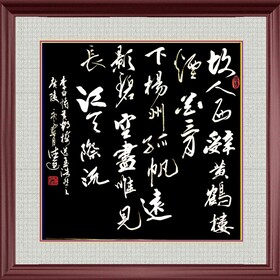 故人西辭黃鶴樓
煙花三月
下楊州孤帆遠
影碧空盡唯見
長江天際流
李白詩黃鶴樓送孟浩然之
廣陵